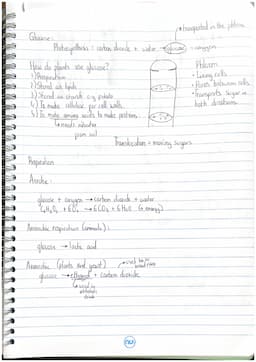 transported in the phloem
Glucose:
Photosynthesis: carbon dioxide + water → glucose + oxygen
How do plants use glucose?
1) Respiration
2) Stored as lipids
3) Stored as starch e.g potato
4) To make cellulose for cell walls
5) To make amino acids to make proteins
↳ needs nitrates from soil
Phloem
- Living cells
- Pores between cells
- transports sugar in both directions
Translocation = moving sugars
Respiration
Aerobic:
glucose + oxygen → carbon dioxide + water
C6H12O6 + 6O2 → 6CO2 + 6H2O (+ energy)
Anaerobic respiration (animals):
glucose → lactic acid
Anaerobic (plants and yeast)
glucose → ethanol + carbon dioxide
used in alcoholic drinks